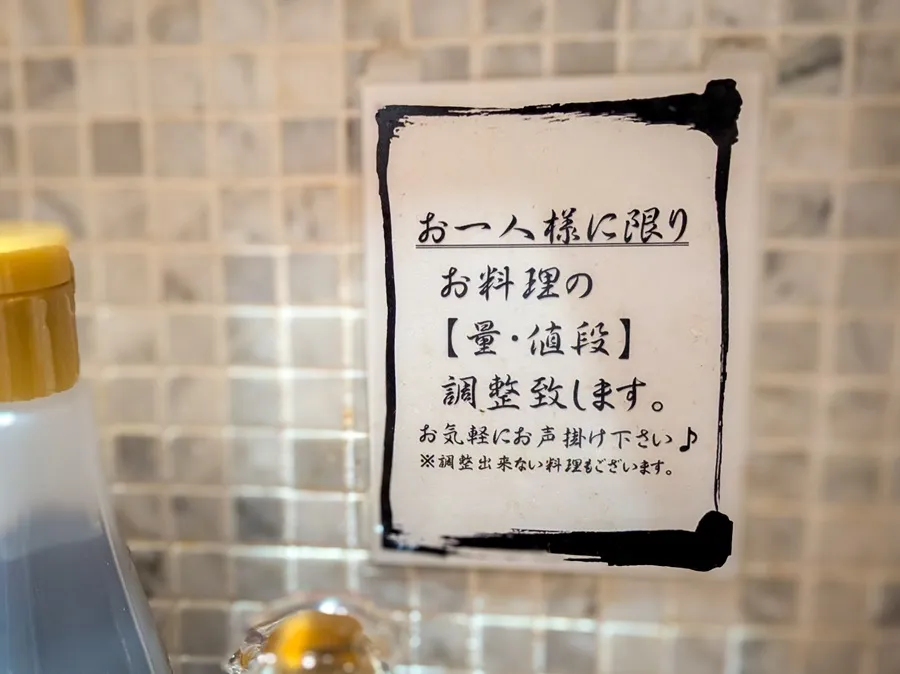 お一人様に限り
お料理の
【量・値段】
調整致します。
お気軽にお声掛け下さい♪
※調整出来ない料理もございます。